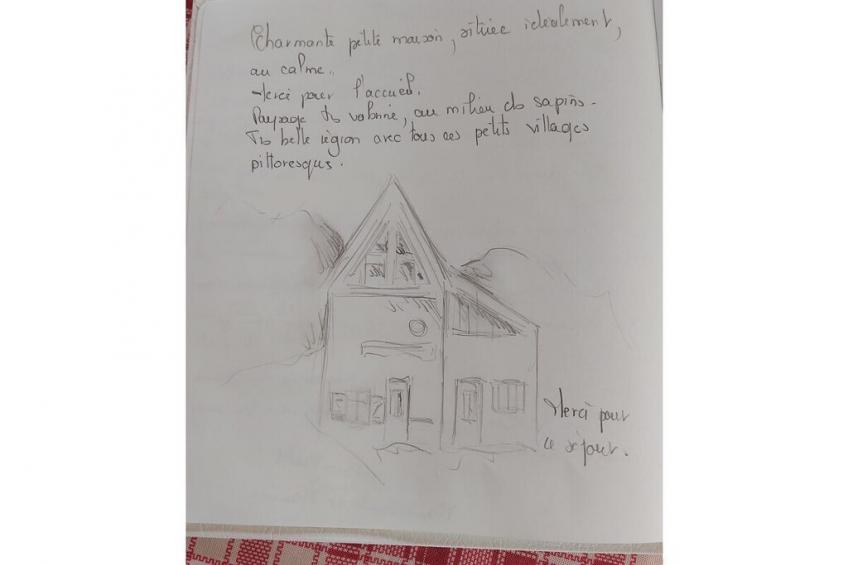 Charmante petite maison, située idéalement,
au calme..
Merci pour l'accueil.
Paysage très vallonné, au milieu des sapins.
Très belle région avec tous ces petits villages
pittoresques.
Merci pour
ce séjour.